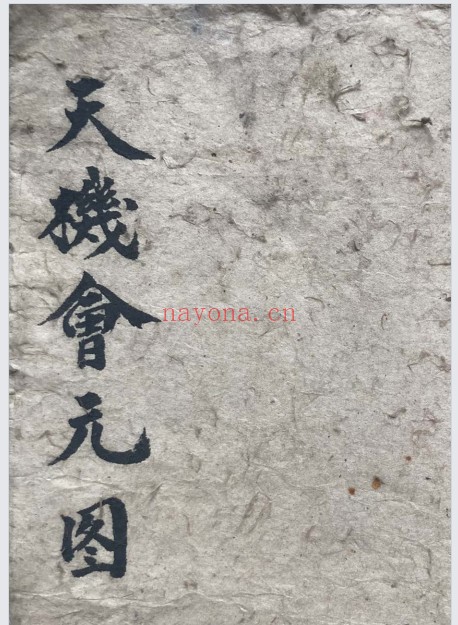 天機會元图
nayona.cn